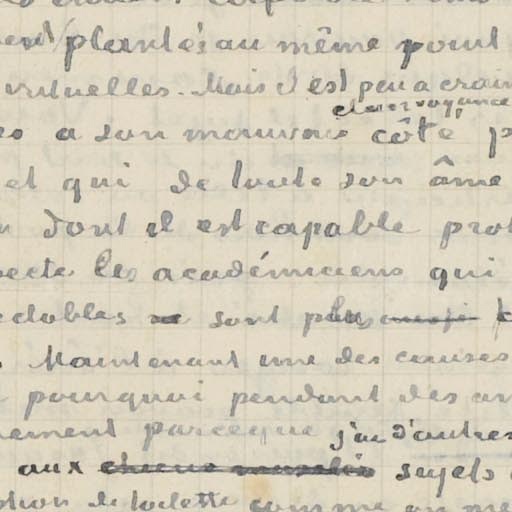 plantés au même point
virtuelles. Mais il est peu a crain
clairvoyance
a son mauvais côté p
et qui de toute son âme
dont il est capable prot
pecte les académiciens qui
sont plus
Maintenant une des causes
pourquoi pendant des an
parceque j'ai d'autres
aux sujets
de toilette comme on me